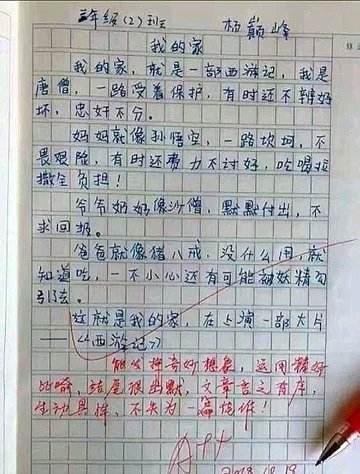 三年级(2)班 杨巅峰
我的家
我的家，就是一部西游记，我是
唐僧，一路受着保护，有时还不辨好
坏，忠奸不分。
妈妈就像孙悟空，一路坎坷，不
畏艰险，有时还费力不讨好，吃喝拉
撒全负担！
爷爷奶奶像沙僧，默默付出，不
求回报。
爸爸就像猪八戒，没什么用，就
知道吃，一不小心还有可能被妖精勾
引去。
这就是我的家，在上演一部大片
——《西游记》
能发挥奇妙想象，运用精妙
比喻，结尾很幽默，文章言之有序，
生动具体，不失为一篇佳作！
A++